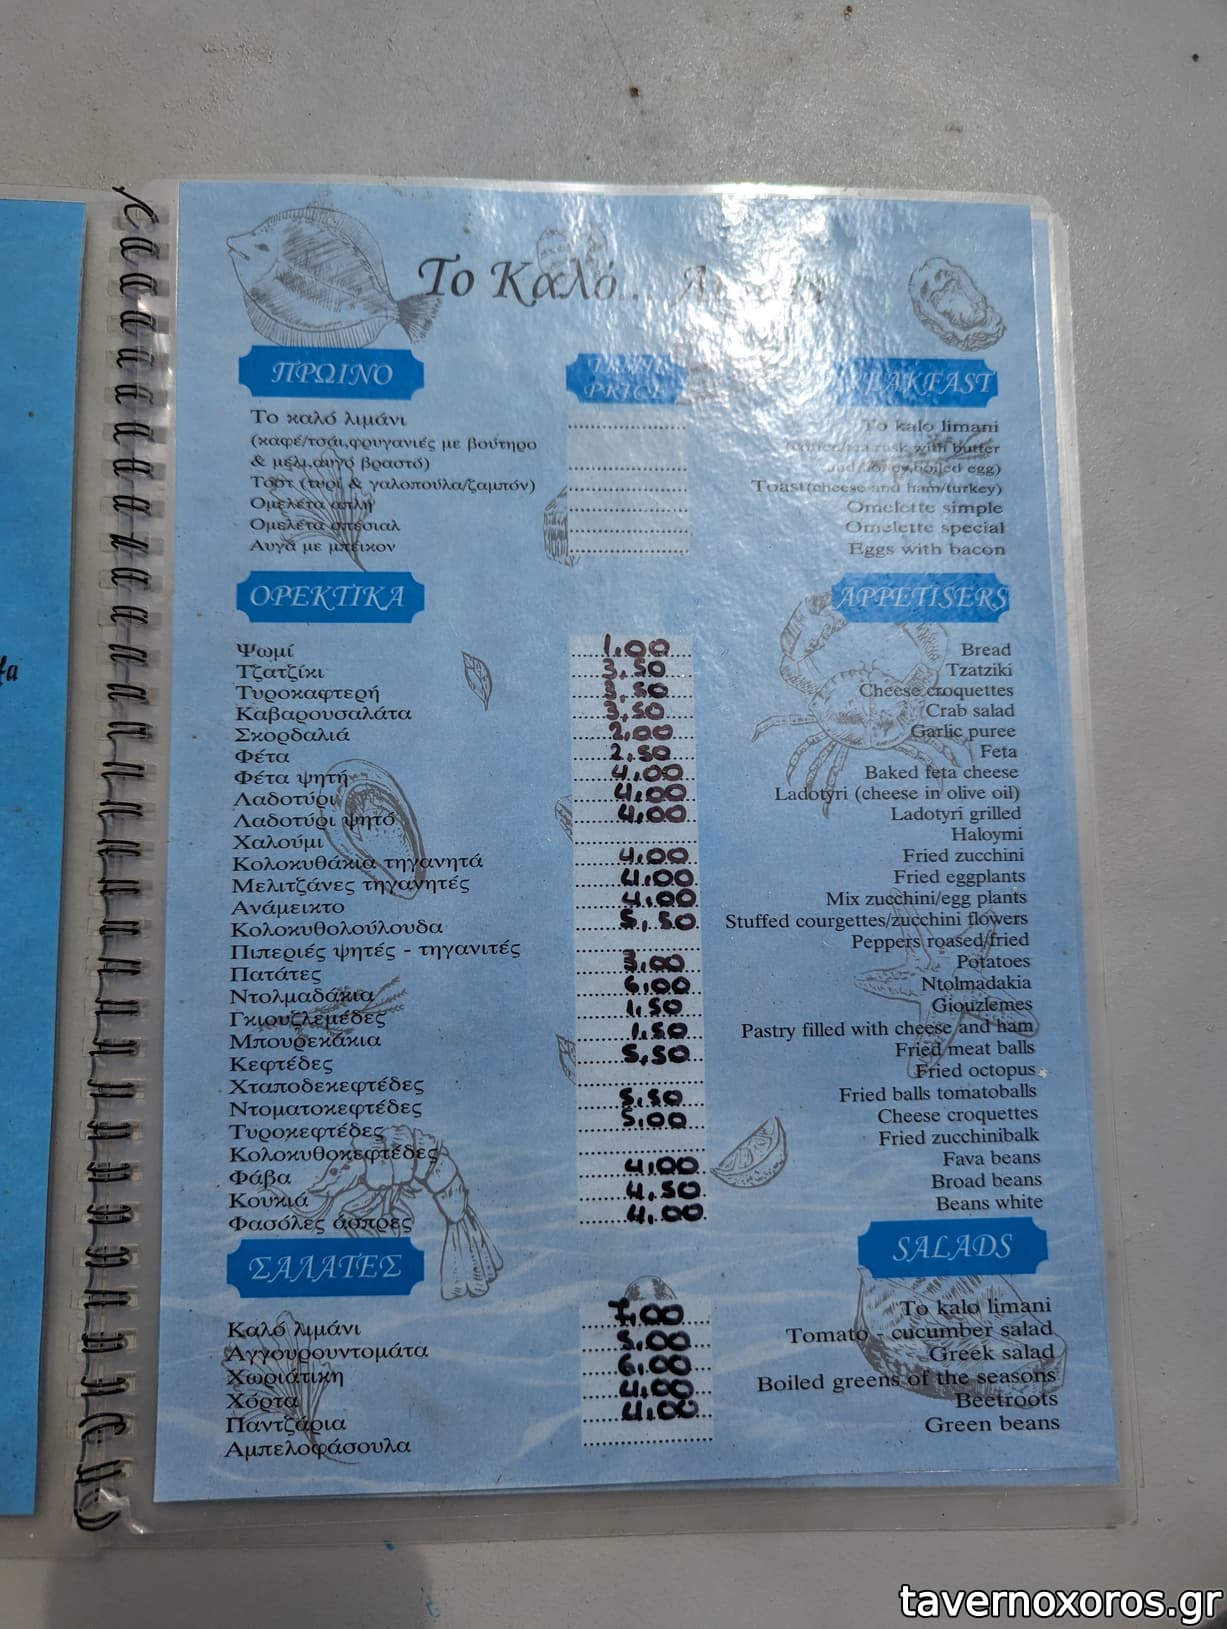 Το Καλό...
ΠΡΩΙΝΟ
PRICE
Το καλό λιμάνι
(καφέ/τσάι,φρυγανιές με βούτηρο
& μέλι,αυγό βραστό)
Τόστ (τυρί & γαλοπούλα/ζαμπόν)
Ομελέτα απλή
Ομελέτα σπέσιαλ
Αυγά με μπέικον
To kalo limani
rusk with butter
boiled egg)
Toast(cheese and ham/turkey)
Omelette simple
Omelette special
Eggs with bacon
ΟΡΕΚΤΙΚΑ
APPETISERS
Ψωμί 1.00 Bread
Τζατζίκι 3.50 Tzatziki
Τυροκαφτερή 3.50 Cheese croquettes
Καβαρουσαλάτα 3.50 Crab salad
Σκορδαλιά 2.00 Garlic puree
Φέτα 2.50 Feta
Φέτα ψητή 4.00 Baked feta cheese
Λαδοτύρι 4.00 Ladotyri (cheese in olive oil)
Λαδοτύρι ψητό 4.00 Ladotyri grilled
Χαλούμι Haloymi
Κολοκυθάκια τηγανητά 4.00 Fried zucchini
Μελιτζάνες τηγανητές 4.00 Fried eggplants
Ανάμεικτο 4.00 Mix zucchini/egg plants
Κολοκυθολούλουδα 5,50 Stuffed courgettes/zucchini flowers
Πιπεριές ψητές - τηγανιτές Peppers roased/fried
Πατάτες 3.00 Potatoes
Ντολμαδάκια 6.00 Ntolmadakia
Γκιουζλεμέδες 1.50 Giouzlemes
Μπουρεκάκια 1.50 Pastry filled with cheese and ham
Κεφτέδες 5,50 Fried meat balls
Χταποδεκεφτέδες Fried octopus
Ντοματοκεφτέδες 5.50 Fried balls tomatoballs
Τυροκεφτέδες 5.00 Cheese croquettes
Κολοκυθοκεφτέδες Fried zucchinibalk
Φάβα 4.00 Fava beans
Κουκιά 4.50 Broad beans
Φασόλες άσπρες 4.00 Beans white
ΣΑΛΑΤΕΣ
SALADS
Καλό λιμάνι 7.00 To kalo limani
Αγγουρουντομάτα 5.00 Tomato - cucumber salad
Χωριάτικη 6.00 Greek salad
Χόρτα 4.00 Boiled greens of the seasons
Παντζάρια 4.00 Beetroots
Αμπελοφάσουλα Green beans
tavernoxoros.gr